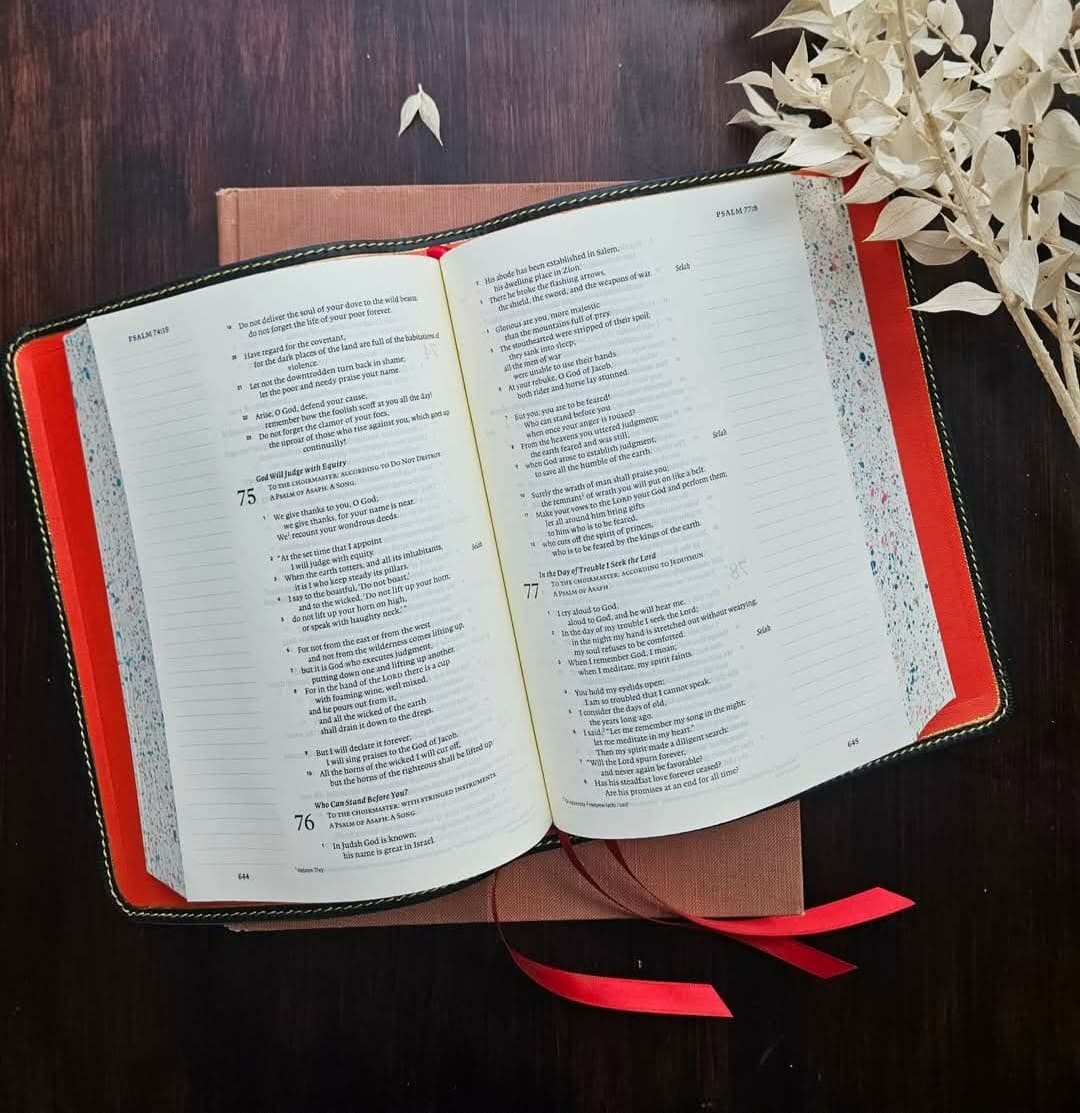 PSALM 74:19
19 Do not deliver the soul of your dove to the wild beasts;
do not forget the life of your poor forever.
20 Have regard for the covenant,
for the dark places of the land are full of the habitations of
violence.
21 Let not the downtrodden turn back in shame;
let the poor and needy praise your name.
22 Arise, O God, defend your cause;
remember how the foolish scoff at you all the day!
23 Do not forget the clamor of your foes,
the uproar of those who rise against you, which goes up
continually!
God Will Judge with Equity
75 TO THE CHOIRMASTER: ACCORDING TO DO NOT DESTROY.
A PSALM OF ASAPH. A SONG.
1 We give thanks to you, O God;
we give thanks, for your name is near.
We¹ recount your wondrous deeds.
2 "At the set time that I appoint
I will judge with equity.
3 When the earth totters, and all its inhabitants,
it is I who keep steady its pillars. Selah
4 I say to the boastful, 'Do not boast,'
and to the wicked, 'Do not lift up your horn;
5 do not lift up your horn on high,
or speak with haughty neck.'"
6 For not from the east or from the west
and not from the wilderness comes lifting up,
7 but it is God who executes judgment,
putting down one and lifting up another.
8 For in the hand of the LORD there is a cup
with foaming wine, well mixed,
and he pours out from it,
and all the wicked of the earth
shall drain it down to the dregs.
9 But I will declare it forever;
I will sing praises to the God of Jacob.
10 All the horns of the wicked I will cut off,
but the horns of the righteous shall be lifted up.
Who Can Stand Before You?
76 TO THE CHOIRMASTER: WITH STRINGED INSTRUMENTS.
A PSALM OF ASAPH. A SONG.
1 In Judah God is known;
his name is great in Israel.
¹ Hebrew They
644
PSALM 77:8
2 His abode has been established in Salem,
his dwelling place in Zion.
3 There he broke the flashing arrows,
the shield, the sword, and the weapons of war. Selah
4 Glorious are you, more majestic
than the mountains full of prey.
5 The stouthearted were stripped of their spoil;
they sank into sleep;
all the men of war
were unable to use their hands.
6 At your rebuke, O God of Jacob,
both rider and horse lay stunned.
7 But you, you are to be feared!
Who can stand before you
when once your anger is roused?
8 From the heavens you uttered judgment;
the earth feared and was still,
9 when God arose to establish judgment,
to save all the humble of the earth. Selah
10 Surely the wrath of man shall praise you;
the remnant¹ of wrath you will put on like a belt.
11 Make your vows to the LORD your God and perform them;
let all around him bring gifts
to him who is to be feared,
12 who cuts off the spirit of princes,
who is to be feared by the kings of the earth.
In the Day of Trouble I Seek the Lord
77 TO THE CHOIRMASTER: ACCORDING TO JEDUTHUN.
A PSALM OF ASAPH.
1 I cry aloud to God,
aloud to God, and he will hear me.
2 In the day of my trouble I seek the Lord;
in the night my hand is stretched out without wearying;
my soul refuses to be comforted.
3 When I remember God, I moan;
when I meditate, my spirit faints. Selah
4 You hold my eyelids open;
I am so troubled that I cannot speak.
5 I consider the days of old,
the years long ago.
6 I said,² "Let me remember my song in the night;
let me meditate in my heart."
Then my spirit made a diligent search:
7 "Will the Lord spurn forever,
and never again be favorable?
8 Has his steadfast love forever ceased?
Are his promises at an end for all time?
Hebrew lacks I said
645